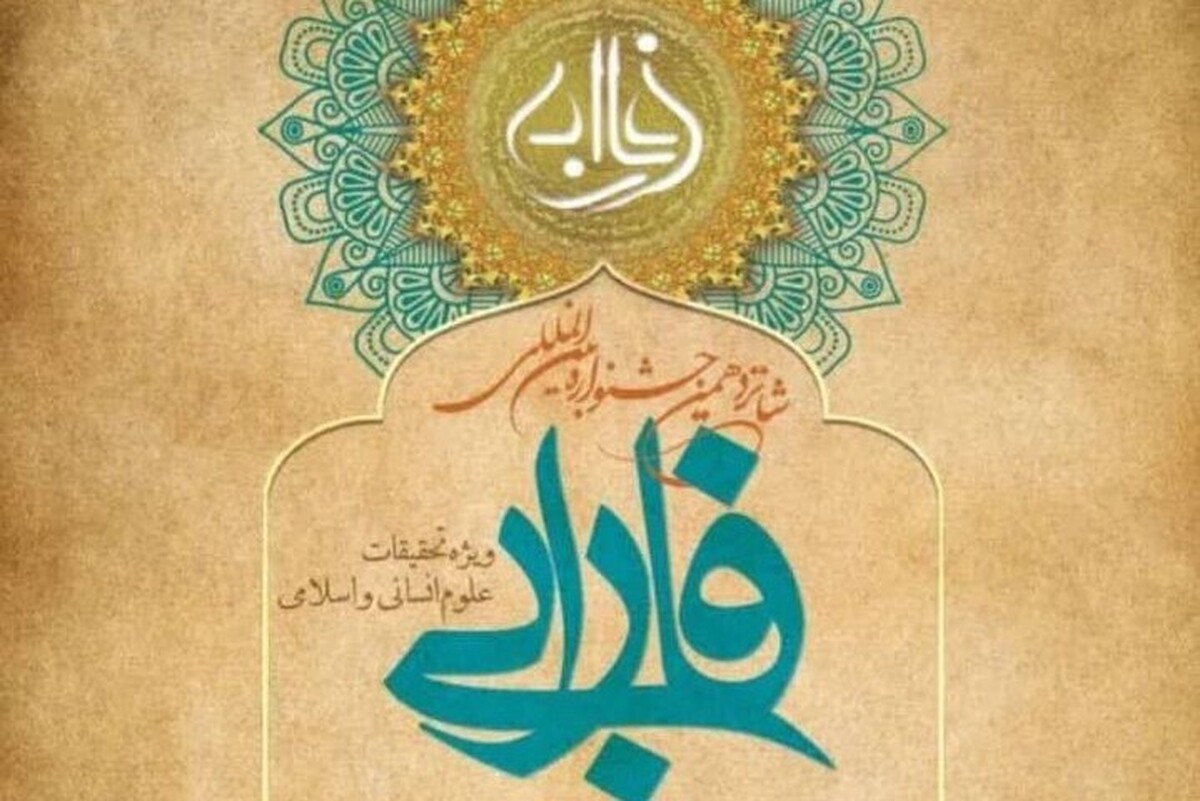 فارابی
شانزدهمین جشنواره بین‌المللی
فارابی
ویژه تحقیقات
علوم انسانی و اسلامی